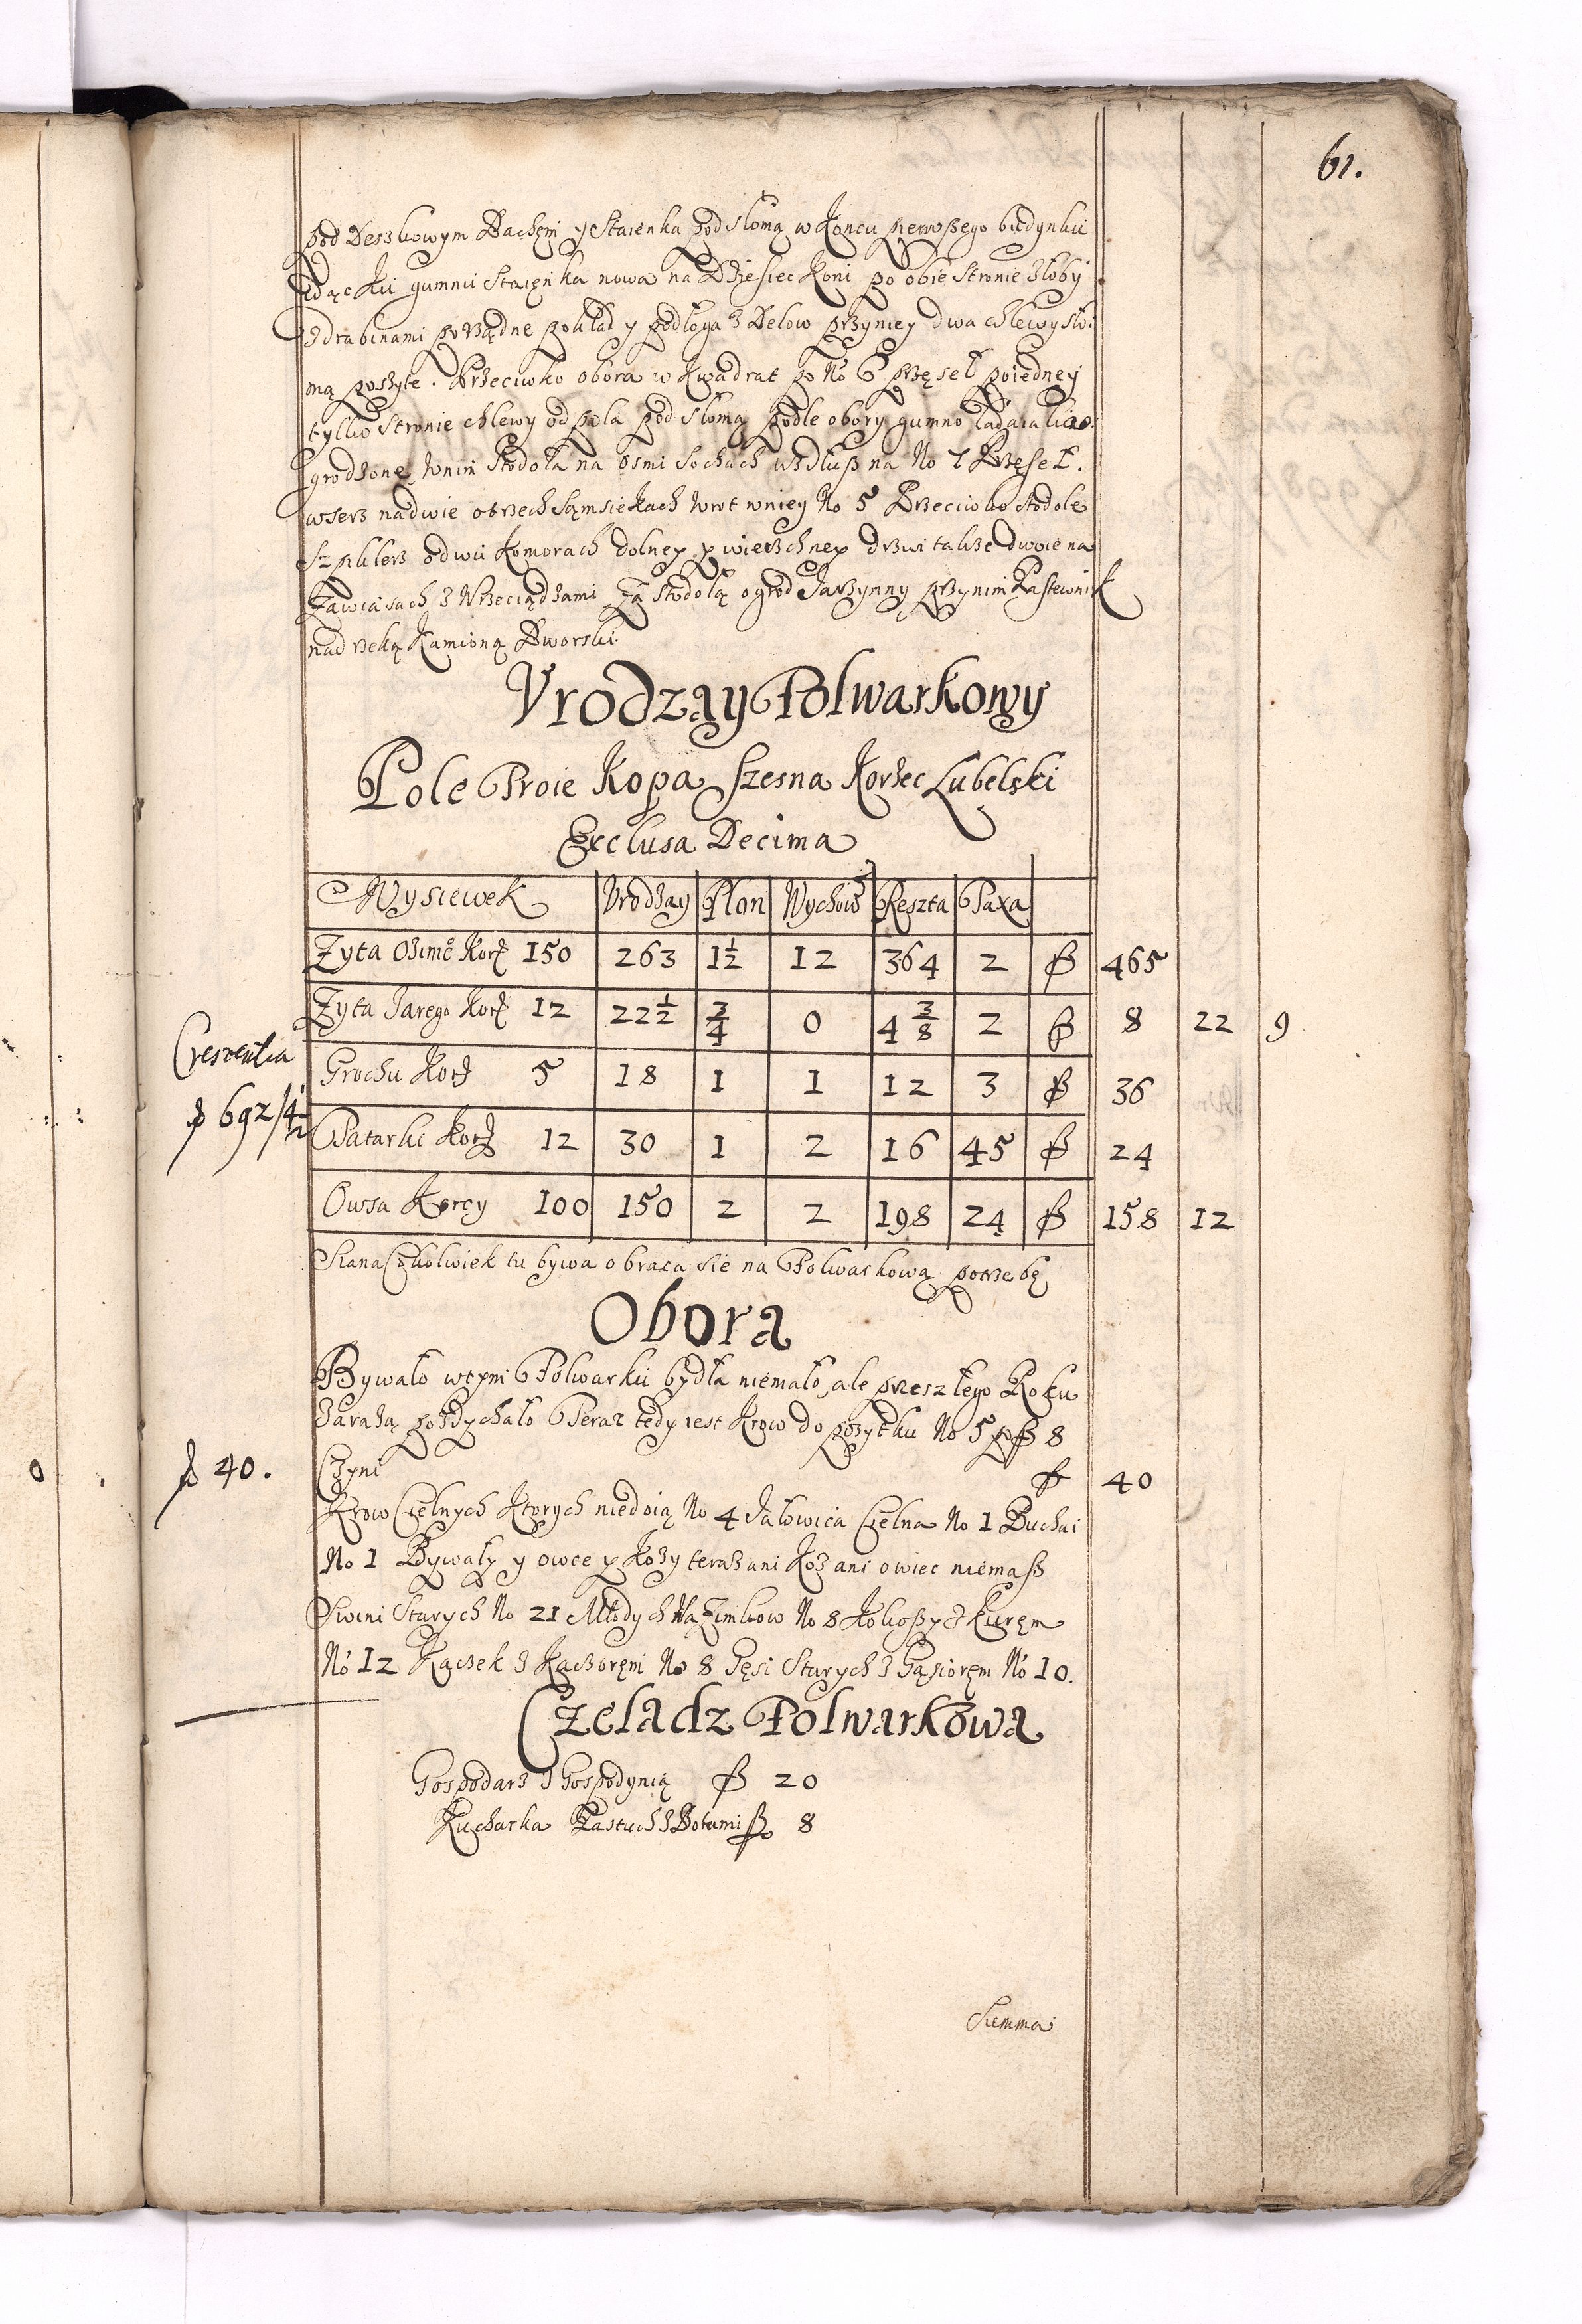 61.
pod Deszkowym Dachem y Staienka pod słomą w Koncu pierwßego budynku
idąc Ku gumnu Staięnka nowa na Dziesiec Koni po obie Stronie żłoby
z drabinami porządne pokład y podłoga z Delow przyniey dwa chlewy sło
mą poszyte. Przeciwko obora w Kwadrat po No 6 przęseł poiedney
tylko Stronie chlewy od pola pod słomą podle obory gumno ladaiako
grodzone, wnim Stodoła na osmi sochach wzdłuß na No 7 Przęseł.
wserz nadwie otrzech Sąmsiekach wrot wniey No 5 Przeciwko stodole
Szpiklerz odwu Komorach dolney y wierzchney drzwi takze dwoie na
Zawiasach z Wrzeciądzami Zą Stodołą ogrod Jarzynny przynim Pastewnik
nad rzeką Kamioną Dworski.
Vrodząy Folwarkowy
Pole Troie Kopa Szesna Korzec Lubelski
Exclusa Decima
Wysiewek Vrodzay Plon Wychow Reszta Taxa
Zyta Ozime Korz 150 263 1½ 12 364 2 ƒß 465
Zyta Jarego Korz 12 22½ ¾ 0 4 3/8 2 ƒß 8 22 9
Crescentia
Grochu Korz 5 18 1 1 12 3 ƒß 36
ƒ 692/4½
Tatarki Korz 12 30 1 2 16 45 ƒß 24
Owsa Korcy 100 150 2 2 198 24 ƒß 158 12
Siana Cokolwiek tu bywa obraca sie na Folwarkową potrzebę
Obora
Bywało wtym Folwarku bydła niemało, ale przeszłego Roku
Zarazą pozdychało Teraz tedy iest Krow do pozytku No 5 po ƒß 8
ƒ 40. Czyni ƒ 40
Krow Cielnych Ktorych niedoią No 4 Jałowica Cielna No 1 Buchai
No 1 Bywały y owce y Kozy teraz ani Koz ani owiec niemaß
Swini Starych No 21 Młodych Zimkow No 8 Kokoßy z Kurem
No 12 Kączek z Kaczorem No 8 Gęsi Starych z Gąsiorem No 10.
Czeladz Folwarkowa
Gospodarz z Gospodynią ƒß 20
Kucharka Pastuch z Botami ƒß 8
Summa